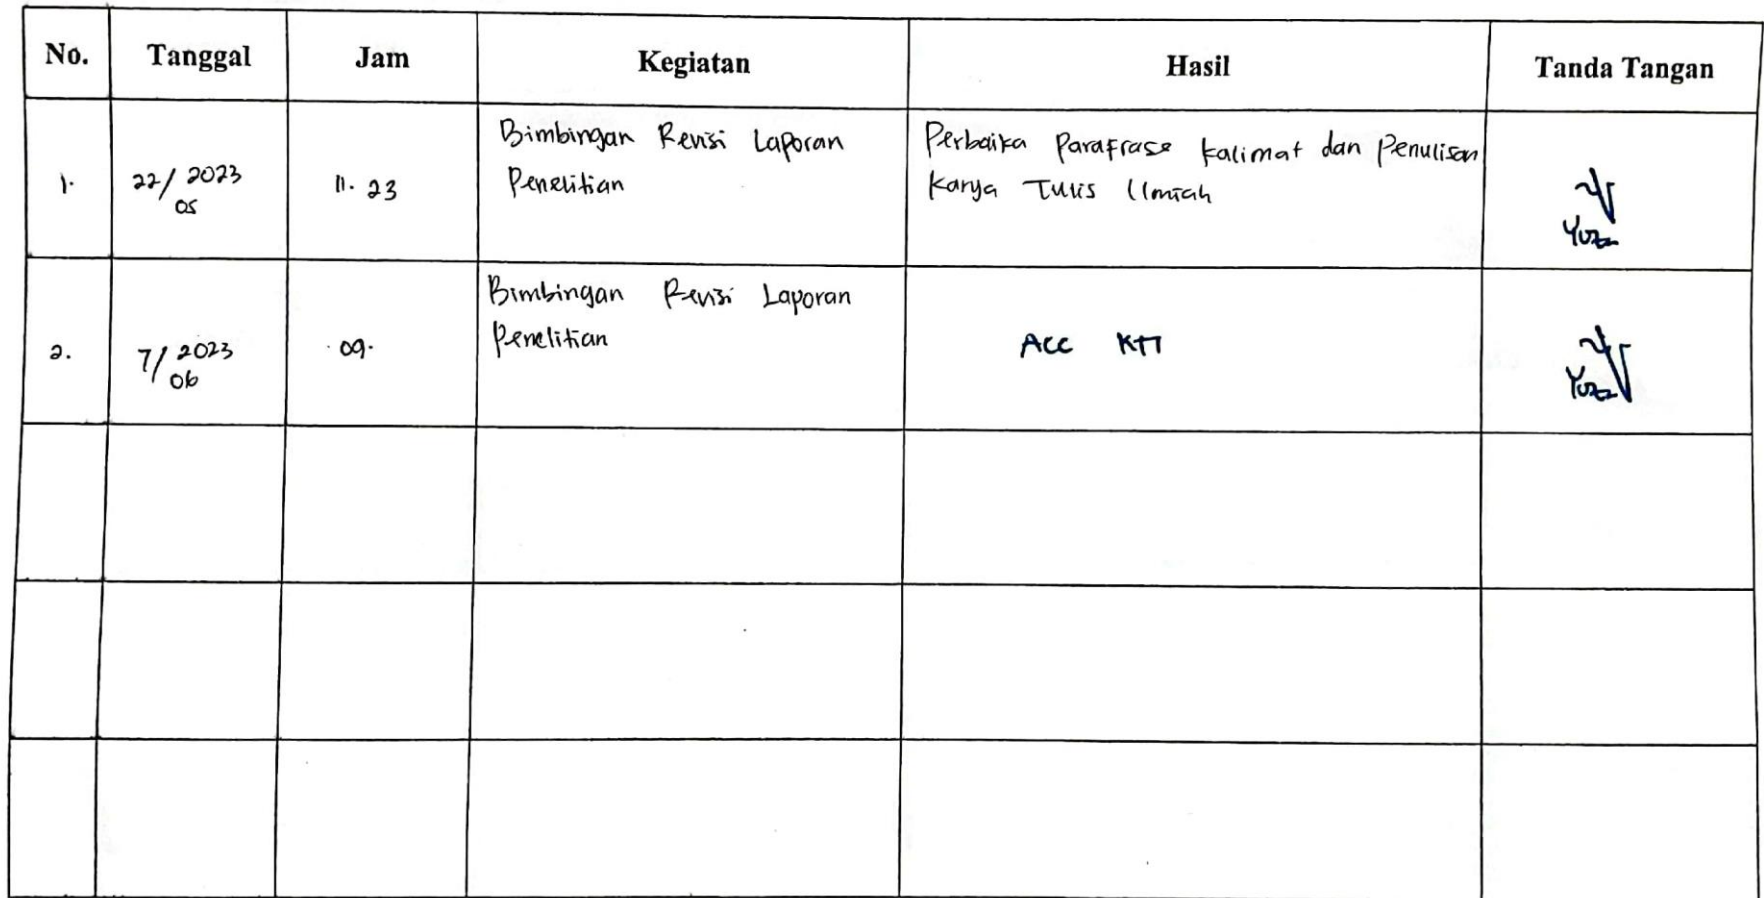 No. Tanggal Jam Kegiatan Hasil Tanda Tangan
1. 22/05 2023 11.23 Bimbingan Revisi Laporan Perbaika Parafrase kalimat dan Penulisan
Penelitian Karya Tulis Ilmiah
2. 7/06 2023 09. Bimbingan Revisi Laporan
Penelitian ACC KTI